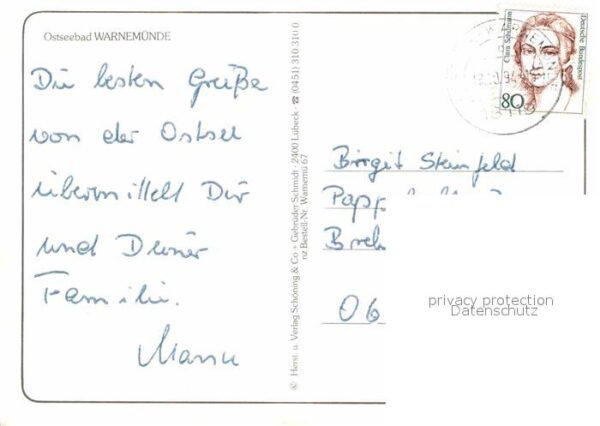 Ostseebad WARNEMÜNDE
Die besten Grüße
von der Ostsee
übermittelt Dir
und Deiner
Familie.
© Herst. u. Verlag Schöning & Co + Gebrüder Schmidt · 2400 Lübeck · ☎ (0451) 310 310
nz Bestell-Nr. Warnemü 67
Clara Schumann
Deutsche Bundespost
80
Birgit Steinfeld
Papp
Breh
06
privacy protection
Datenschutz